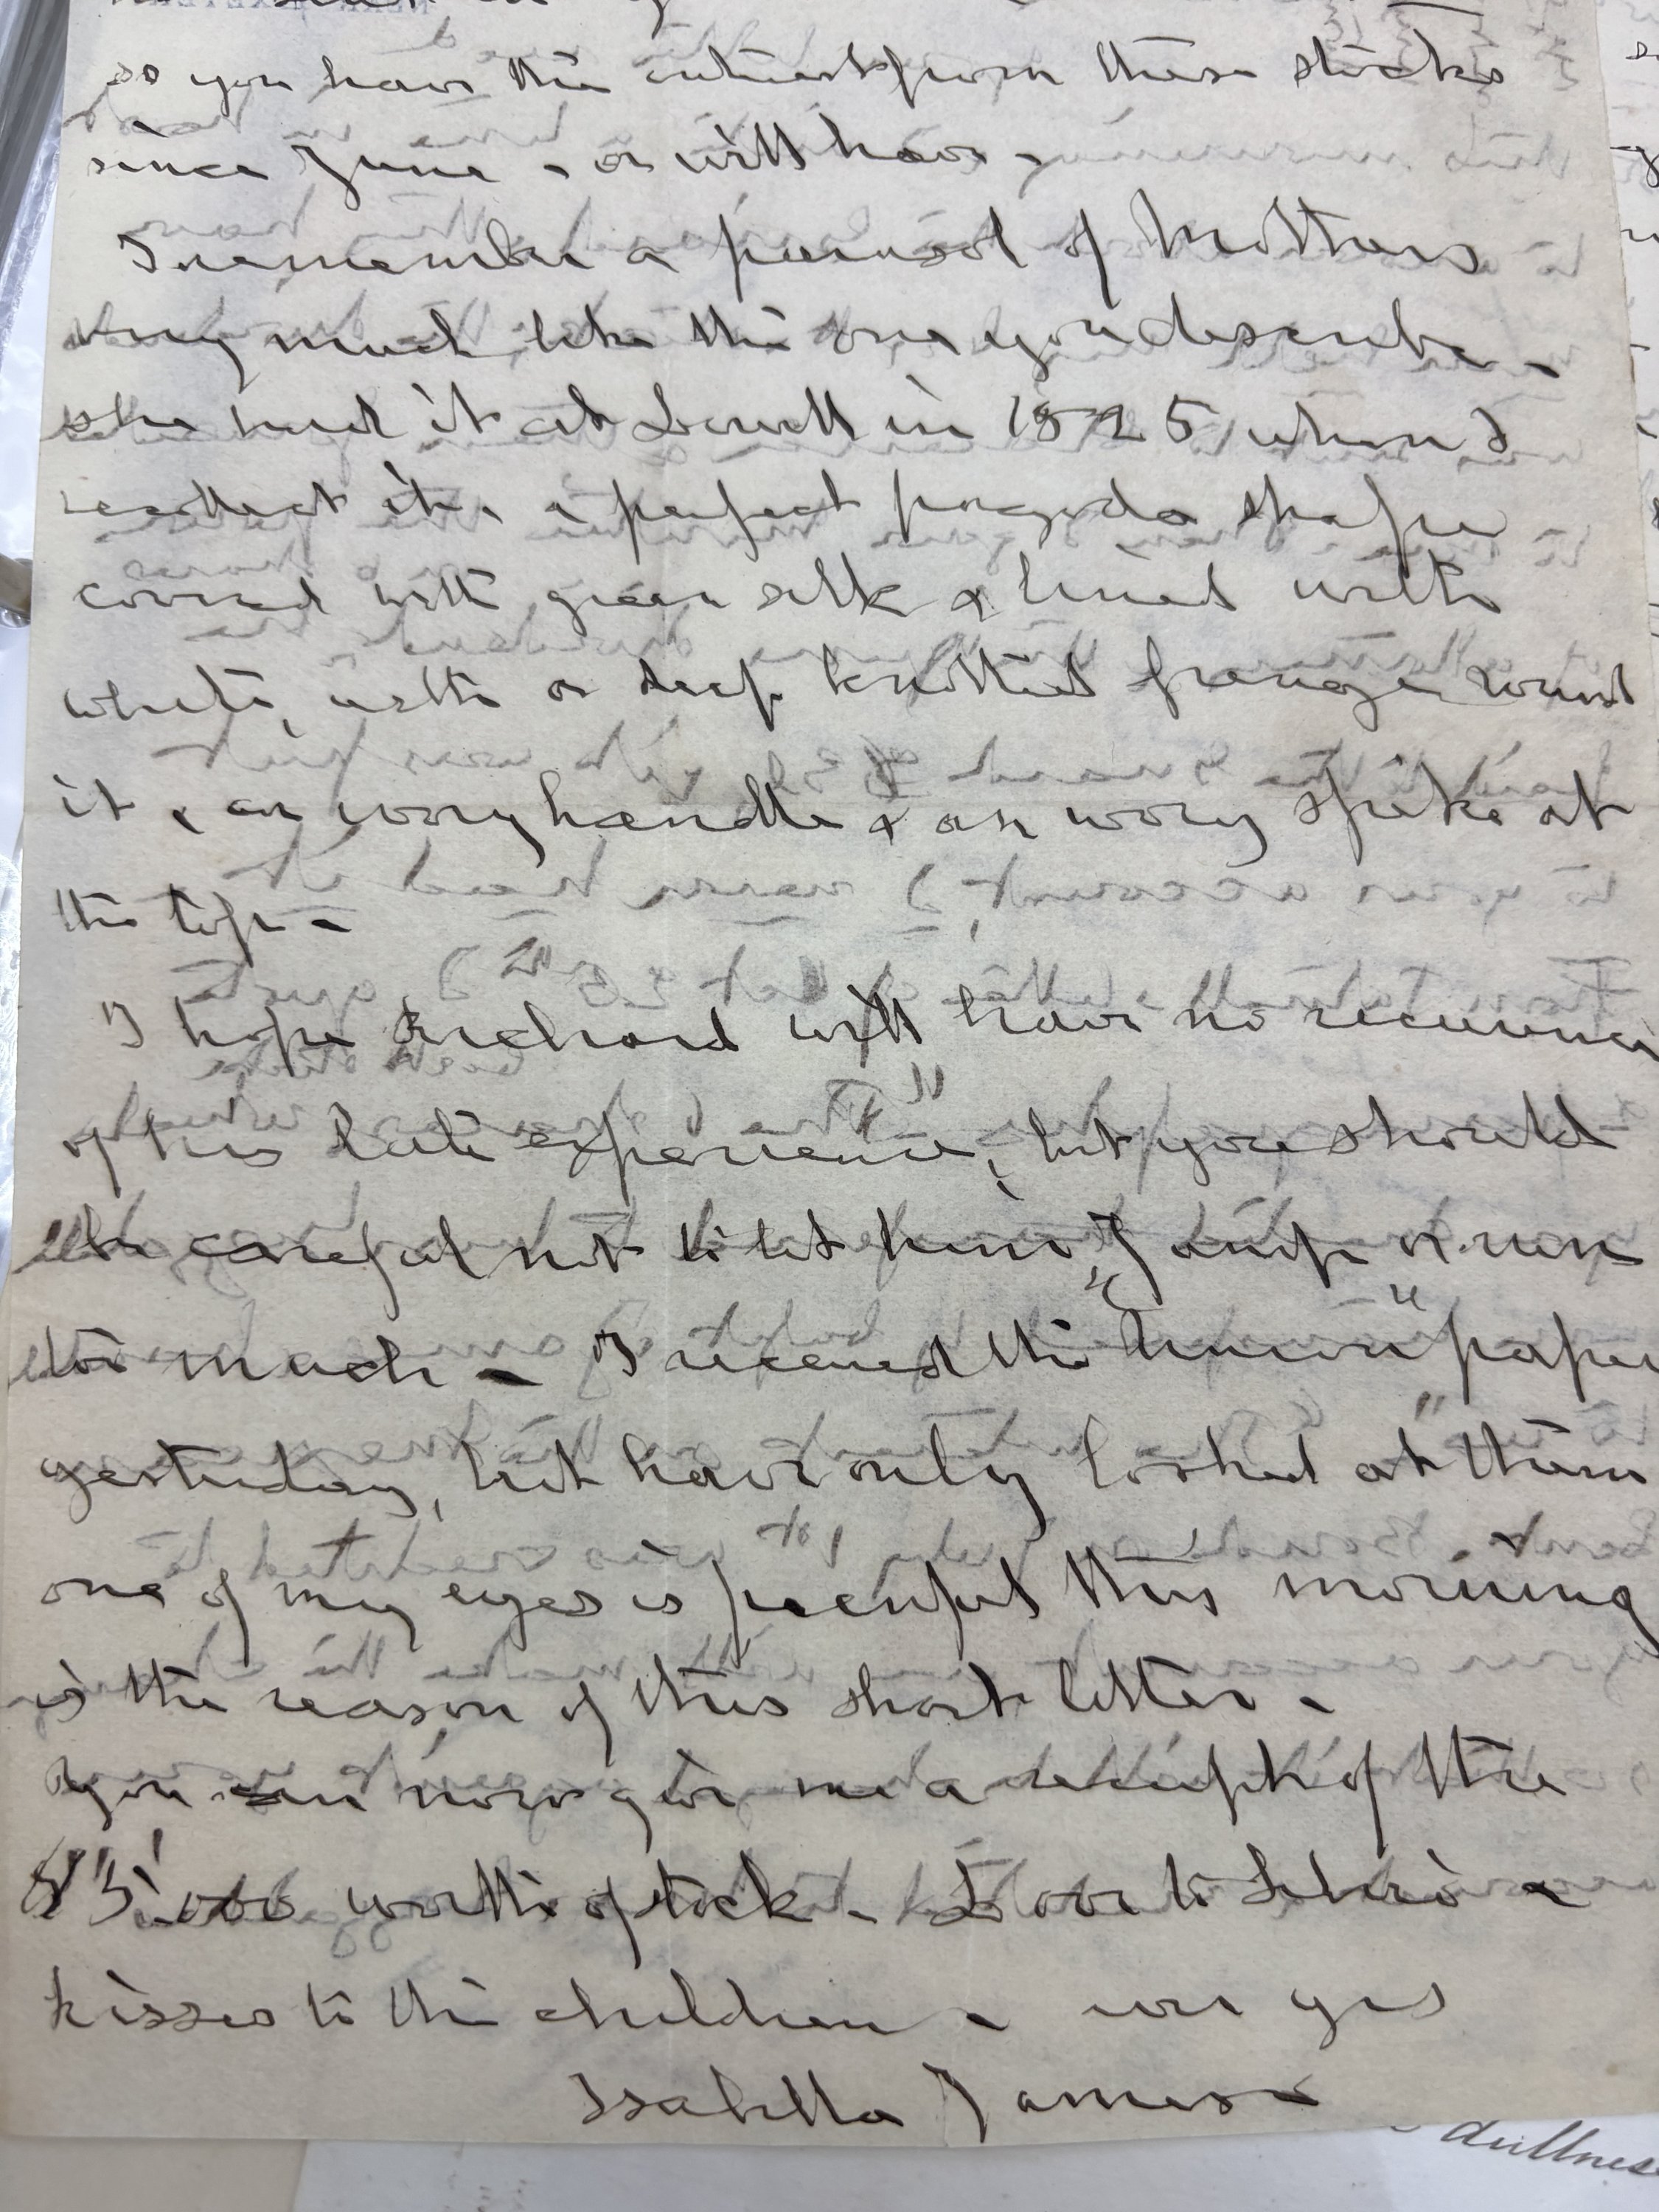 so you have the interest from these stocks
since June - or will have -
I remember a parasol of Mothers
very much like the one you describe -
she had it at Lowell in 1825 when I
recollect it - a perfect pagoda shape
covered with green silk & lined with
white, with a deep knotted fringe round
it, an ivory handle & an ivory spike at
the top -
I hope Richard will have no recurrence
of his late experience, but you should
be careful not to let him jump or run
too much - I received the " " paper
yesterday, but have only looked at them
one of my eyes is painful this morning
is the reason of this short letter -
you can now give me a receipt of the
worth of stock - Love to
kisses to the children - ever yrs
Isabella James -
dullness